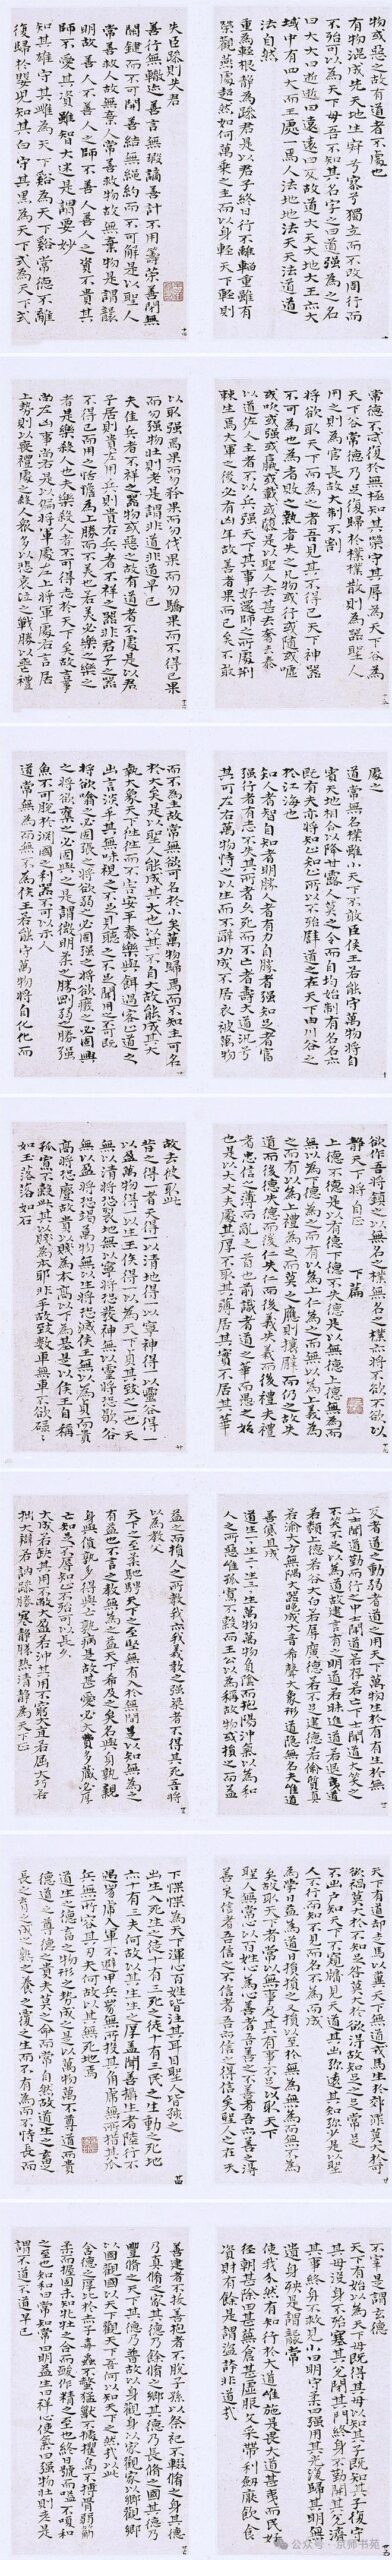 物或惡之故有道者不處也
有物混成先天地生寂兮寥兮獨立而不改周行而
不殆可以為天下母吾不知其名字之曰道强為之名
曰大大曰逝逝曰遠遠曰反故道大天大地大王亦大
域中有四大而王處一焉人法地地法天天法道道
法自然
重為輕根靜為躁君是以君子終日行不離輜重雖有
榮觀燕處超然如何萬乘之主而以身輕天下輕則
失臣躁則失君
善行無轍迹善言無瑕謫善計不用籌策善閉無
關鍵而不可開善結無繩約而不可解是以聖人
常善救人故無棄人常善救物故無棄物是謂襲
明故善人不善人之師不善人善人之資不貴其
師不愛其資雖智大迷是謂要妙
知其雄守其雌為天下谿為天下谿常德不離
復歸於嬰兒知其白守其黑為天下式為天下式
常德不忒復於無極知其榮守其辱為天下谷為
天下谷常德乃足復歸於樸樸散則為器聖人
用之則為官長故大制不割
將欲取天下而為之者吾見其不得已天下神器
不可為也為者敗之執者失之凡物或行或隨或噓
或吹或强或羸或載或隳是以聖人去甚去奢去泰
以道佐人主者不以兵强天下其事好還師之所處荊
棘生焉大軍之後必有凶年故善者果而已矣不敢
以取强焉果而勿矜果而勿伐果而勿驕果而不得已果
而勿强物壯則老是謂非道非道早已
夫佳兵者不祥之器物或惡之故有道者不處是以君
子居則貴左用兵則貴右兵者不祥之器非君子之器
不得已而用之恬憺為上勝而不美也若美必樂之樂之
者是樂殺人也夫樂殺人者不可得志於天下矣故吉事
尚左凶事尚右是以偏將軍處左上將軍處右言居
上勢則以喪禮處之殺人衆多以悲哀泣之戰勝以喪禮
處之
道常無名樸雖小天下不敢臣侯王若能守萬物將自
賓天地相合以降甘露人莫之令而自均始制有名名亦
既有夫亦將知止知止所以不殆譬道之在天下由川谷之
於江海也
知人者智自知者明勝人者有力自勝者强知足者富
强行者有志不失其所者久死而不亡者壽大道汎兮
其可左右萬物恃之以生而不辭功成不居衣被萬物
而不為主故常無欲可名於小矣萬物歸焉而不知主可名
於大矣是以聖人能成其大也以其不自大故能成其大
執大象天下往往而不害安平泰樂與餌過客止道之
出言淡乎其無味視之不足見聽之不足聞用不可既
將欲噏之必固張之將欲弱之必固强之將欲廢之必固興
之將欲奪之必固與之是謂微明柔之勝剛弱之勝强
魚不可脫於淵國之利器不可以示人
道常無為而無不為侯王若能守萬物將自化化而
欲作吾將鎮之以無名之樸無名之樸亦將不欲不欲以
靜天下將自正 下篇
上德不德是以有德下德不失德是以無德上德無為而
無以為下德為之而有以為上仁為之而無以為上義為
之而有以為上禮為之而莫之應則攘臂而仍之故失
道而後德失德而後仁失仁而後義失義而後禮夫禮
者忠信之薄而亂之首也前識者道之華而愚之始
也是以大丈夫處其厚不取其薄居其實不居其華
故去彼取此
昔之得一者天得一以清地得一以寧神得一以靈谷得一
以盈萬物得一以生王侯得一以為天下貞其致之一也天
無以清將恐裂地無以寧將恐發神無以靈將恐歇谷
無以盈將恐竭萬物無以生將恐滅侯王無以為貞而貴
高將恐蹷故貴以賤為本高以下為基是以侯王自稱
孤寡不穀其以賤為本耶非乎故致數車無車不欲碌碌
如玉落落如石
反者道之動弱者道之用天下萬物生於有有生於無
上士聞道勤而行之中士聞道若存若亡下士聞道大笑之
不笑不足以為道故建言有之明道若昧進道若退夷道
若纇上德若谷大白若辱廣德若不足建德若偷質真
若渝大方無隅大器晚成大音希聲大象無形道隱無名夫唯道
善貸且成
道生一一生二二生三三生萬物萬物負陰而抱陽沖氣以為和
人之所惡唯孤寡不穀而王公以為稱故物或損之而益
益之而損人之所教我亦我義教之强梁者不得其死吾將
以為教父
天下之至柔馳騁天下之至堅無有入於無間是以知無為之
有益也不言之教無為之益天下希及之矣名與身孰親
身與貨孰多得與亡孰病是故甚愛必大費多藏必厚
亡知足不辱知止不殆可以長久
大成若缺其用不敝大盈若沖其用不窮大直若屈大巧若
拙大辯若訥躁勝寒靜勝熱清靜為天下正
天下有道却走馬以糞天下無道戎馬生於郊罪莫大於可
欲禍莫大於不知足咎莫大於欲得故知足之足常足
不出戶知天下不窺牖見天道其出彌遠其知彌少是以聖
人不行而知不見而名不為而成
為學日益為道日損損之又損以至於無為無為而無不為
故取天下者常以無事及其有事不足以取天下
聖人無常心以百姓心為心善者吾善之不善者吾亦善之得
善矣信者吾信之不信者吾亦信之得信矣聖人之在天
下惵惵為天下渾心百姓皆注其耳目聖人皆孩之
出生入死生之徒十有三死之徒十有三民之生動之死地
亦十有三夫何故以其生生之厚蓋聞善攝生者陸行不
遇兕虎入軍不避甲兵兕無所投其角虎無所措其爪
兵無所容其刃夫何故以其無死地焉
道生之德畜之物形之勢成之是以萬物莫不尊道而貴
德道之尊德之貴夫莫之命而常自然故道生之畜之
長之育之成之熟之養之覆之生而不有為而不恃長而
不宰是謂玄德
天下有始以為天下母既得其母以知其子既知其子復守
其母沒身不殆塞其兌閉其門終身不勤開其兌濟
其事終身不救見小曰明守柔曰强用其光復歸其明無
遺身殃是謂襲常
使我介然有知行於大道唯施是畏大道甚夷而民好
徑朝甚除田甚蕪倉甚虛服文采帶利劍厭飲食
資財有餘是謂盜誇非道哉
善建者不拔善抱者不脫子孫以祭祀不輟脩之身其德
乃真脩之家其德乃餘脩之鄉其德乃長脩之國其德乃
豐脩之天下其德乃普故以身觀身以家觀家以鄉觀鄉
以國觀國以天下觀天下吾何以知天下之然哉以此
含德之厚比於赤子毒蟲不螫猛獸不據攫鳥不搏骨弱筋
柔而握固未知牝牡之合而酸作精之至也終日號而嗌不嗄和
之至也知和曰常知常曰明益生曰祥心使氣曰强物壯則老是
謂不道不道早已
公众号·京师书苑